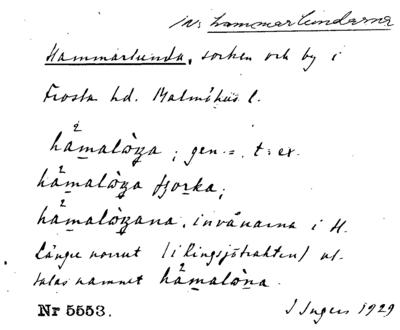 in: Hammarlundarna
Hammarlunda, socken och by i
Frosta hd. Malmöhus l.
håmalòŋa; gen. =. t. ex.
håmalòŋa kjorka;
håmalòŋana, invånarna i H.
Längre norrut (i Ringsjötrakten) ut-
talas namnet håmalòna.
Nr 5553.
I Ingers 1929